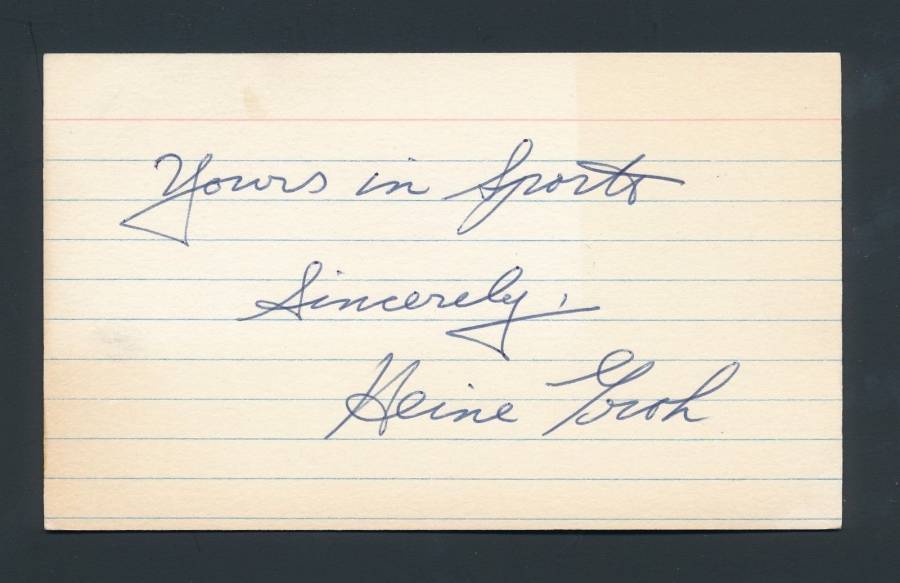 Yours in Sports
Sincerely,
Heine Groh